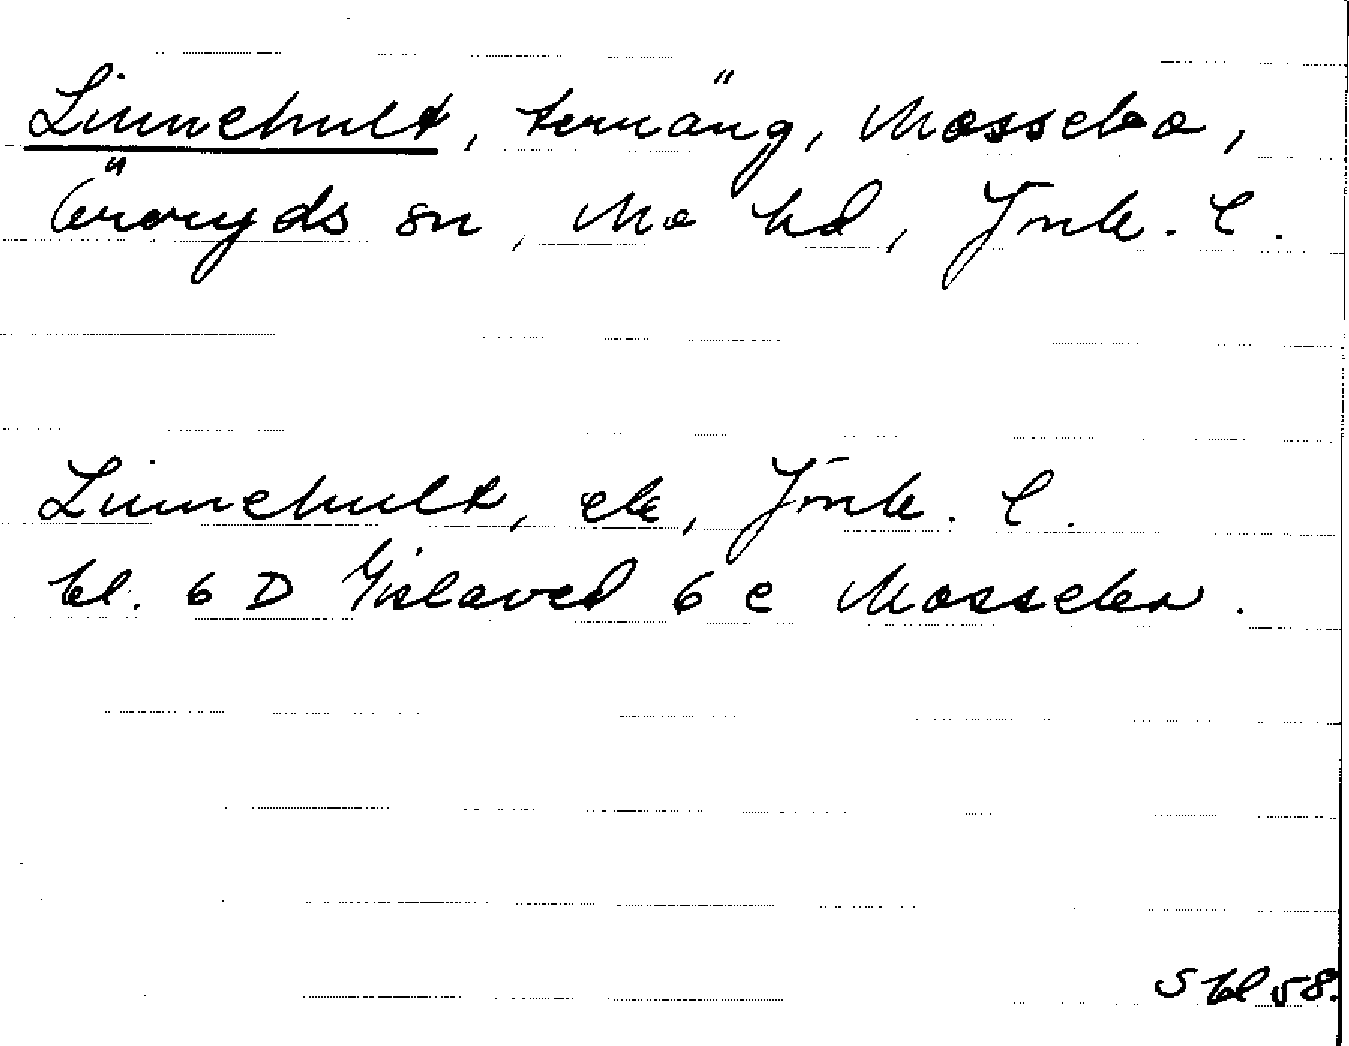 Linnehult, ternäng, Mossebo,
Öreryds sn, Mo hd, Jönk. l.
Linnehult, ek, Jönk. l.
bl. 6 D Gislaved 6 c Mossebo.
S bl 58.